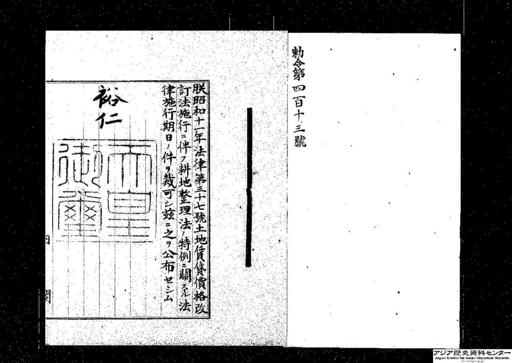 勅令第四百十三號
朕昭和十一年法律第三十七號土地賃貸價格改
訂法施行ニ伴フ耕地整理法ノ特例ニ關スル法
律施行期日ノ件ヲ裁可シ玆ニ之ヲ公布セシム
裕仁
天皇
御璽
内閣
アジア歴史資料センター
Japan Center for Asian Historical Records